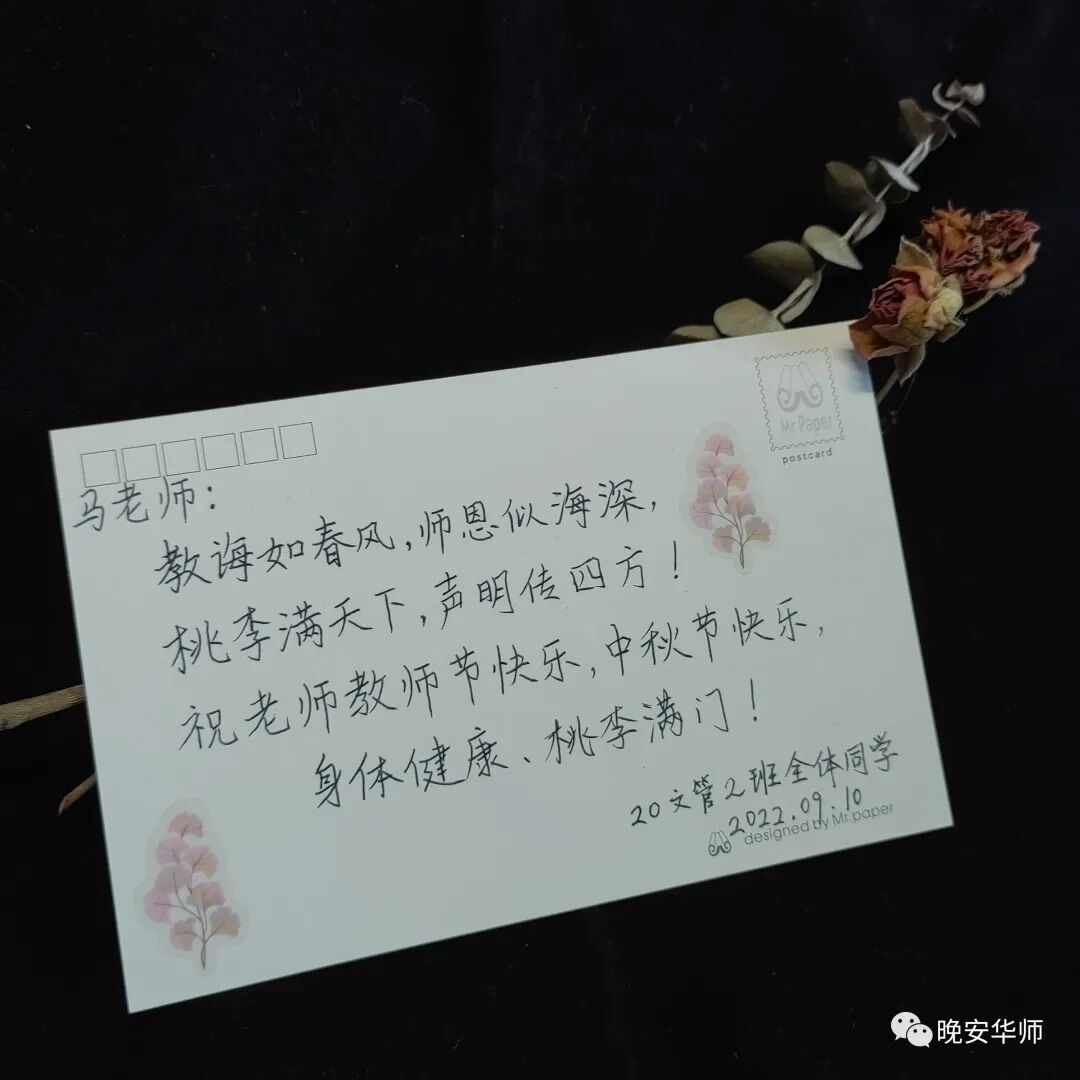 Mr.Paper
postcard
马老师：
教诲如春风，师恩似海深，
桃李满天下，声明传四方！
祝老师教师节快乐，中秋节快乐，
身体健康、桃李满门！
20文管2班全体同学
2022.09.10
designed by Mr.paper
晚安华师